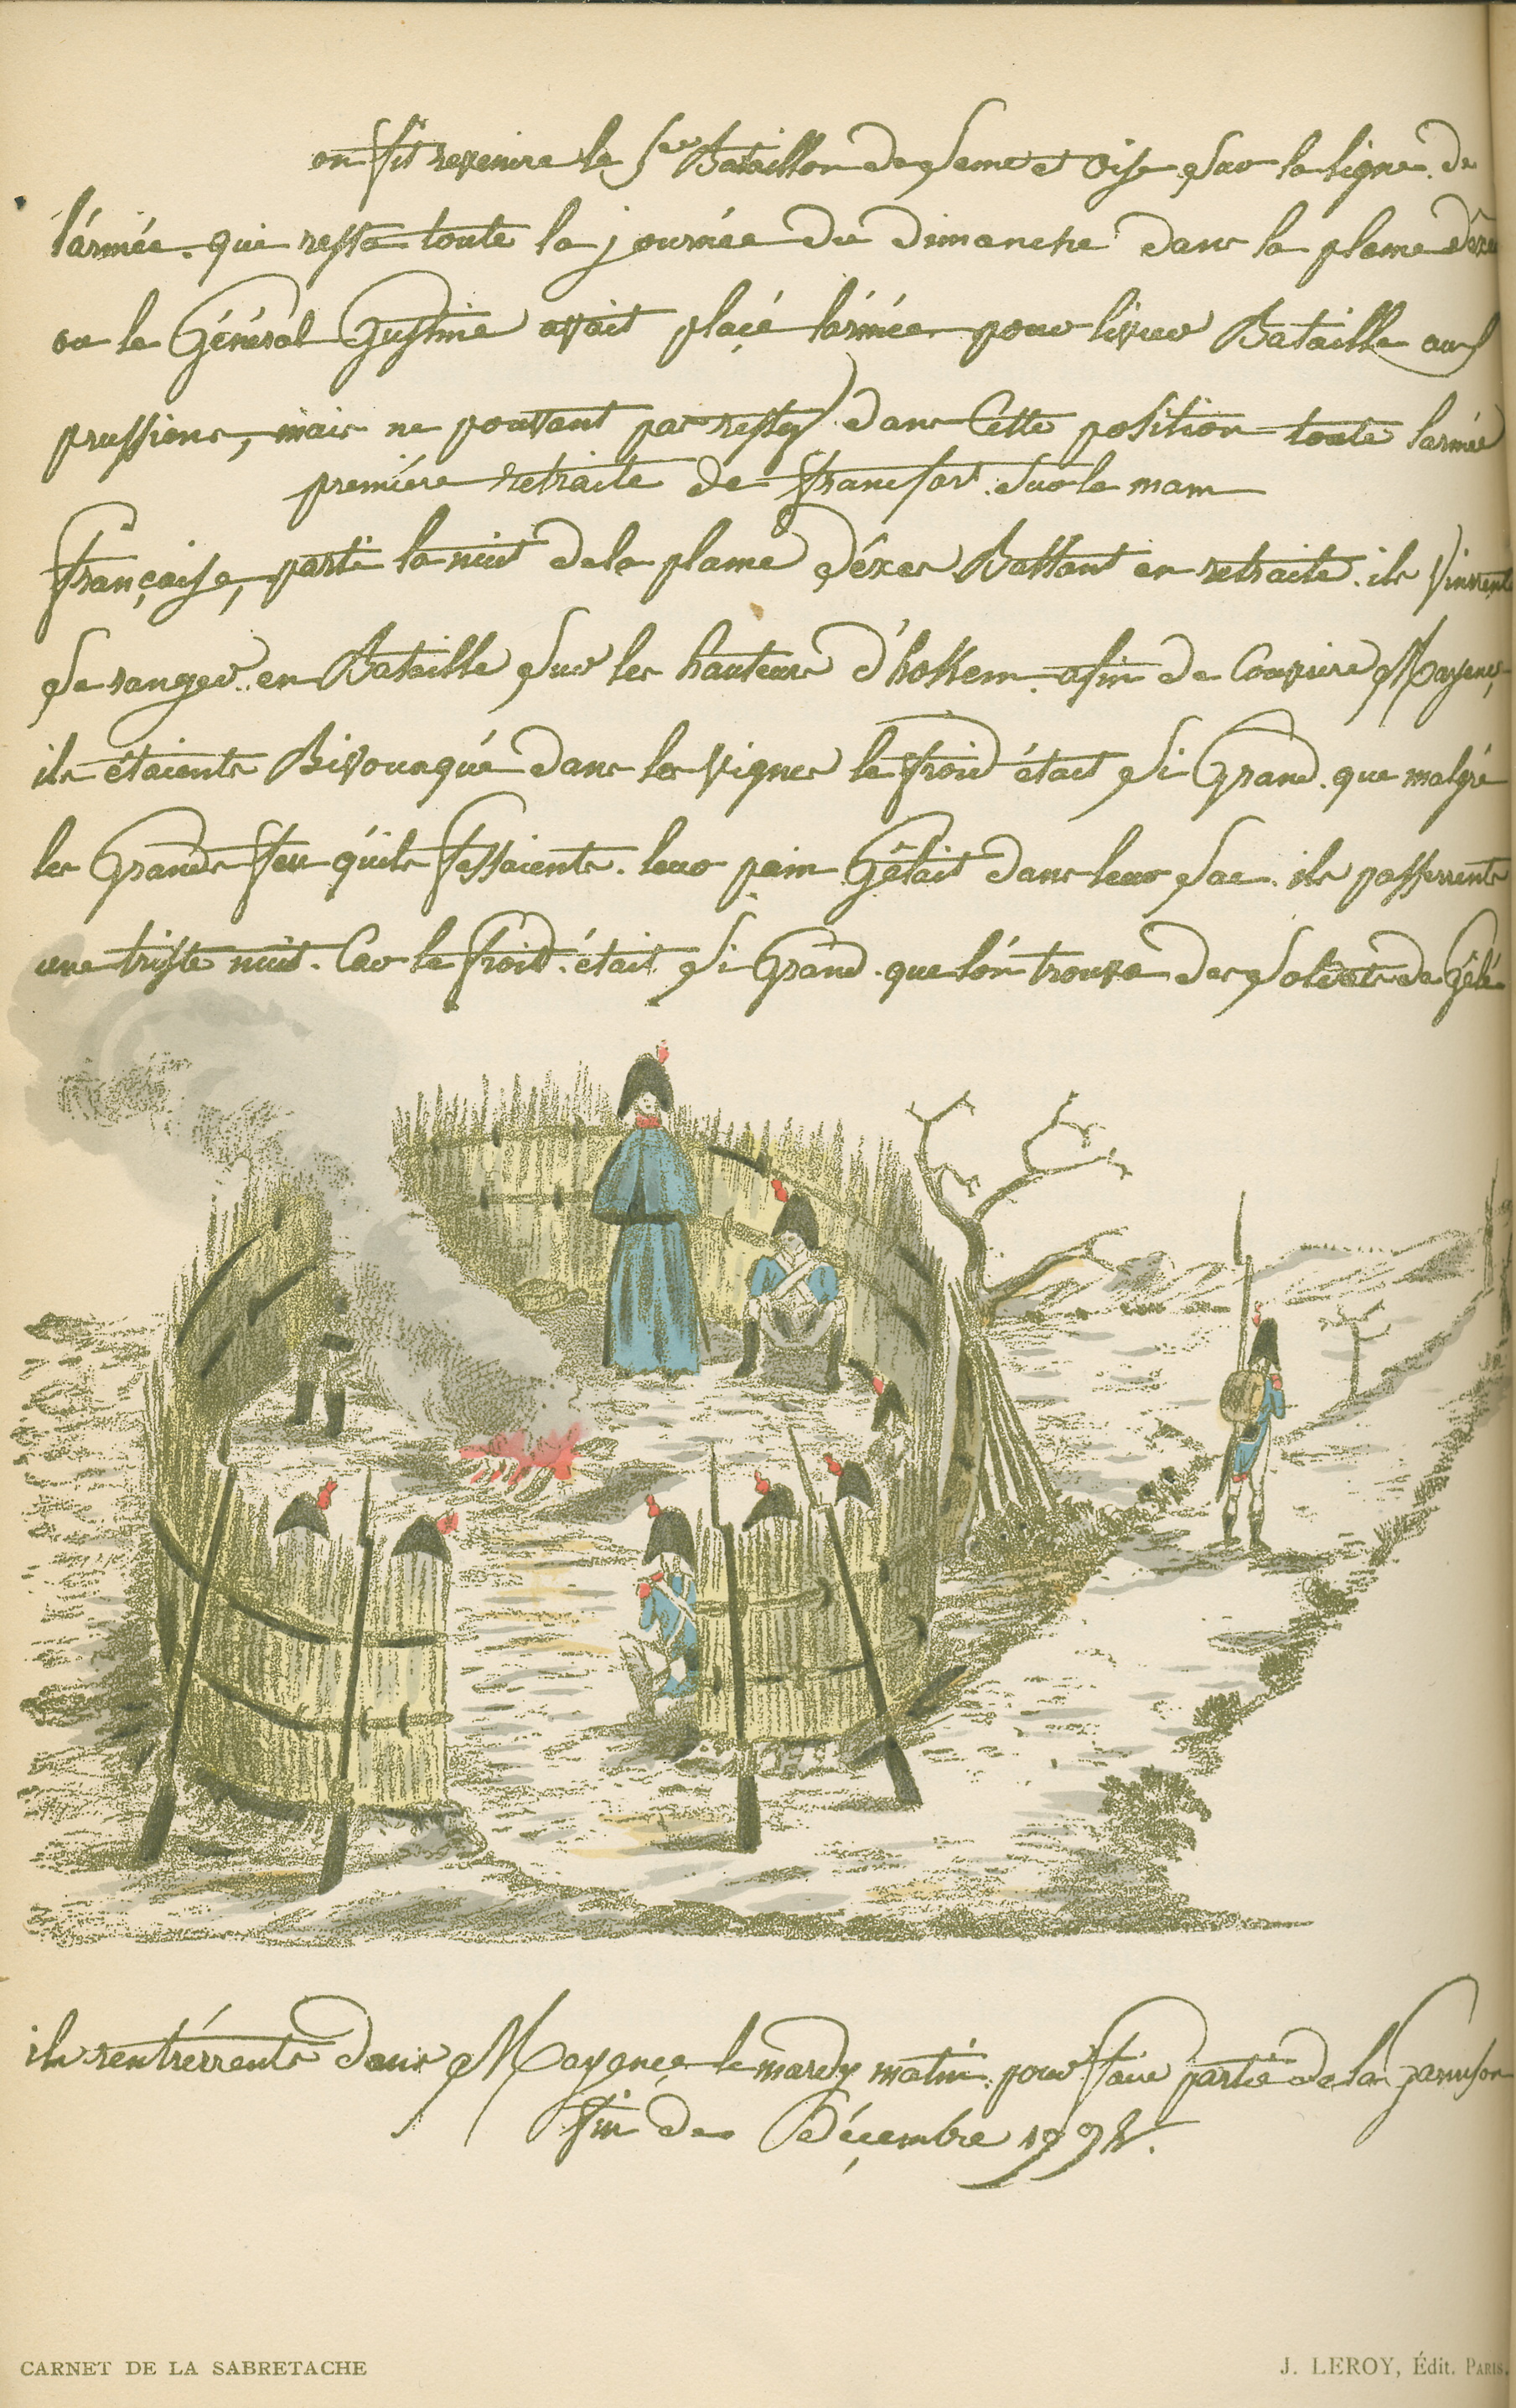 on fit revenire le 1er Bataillon de Seine et Oise Sur la ligne de
l'ármée qui resta toute la journée du dimanche dans la plaine
ou le Général Custine avoit plaçé l'ármée pour livrer Bataille aux
prussiens, mais ne pouvant pas rester dans Cette position toute l'armée
premiére retraite de francfort Sur le main
française, parti la nuit de la plaine Battant en retraite ils vinrent
Se ranger en Bataille Sur les hauteurs d'hokeim afin de Couvrire Mayençe
ils étaients Bivouaqué dans les vignes le froid était Si Grand que malgré
les Grands feu qu'ils fessaients leur pain Gélait dans leur Sac ils passerrents
une triste nuit Car le froid était Si Grand que l'ón trouva des Soldats de Gélé
ils rentrérrents dans Mayençe le mardy matin pour faire partie de la garnison
fin de Déçembre 1792.
CARNET DE LA SABRETACHE
J. LEROY, Édit. PARIS.